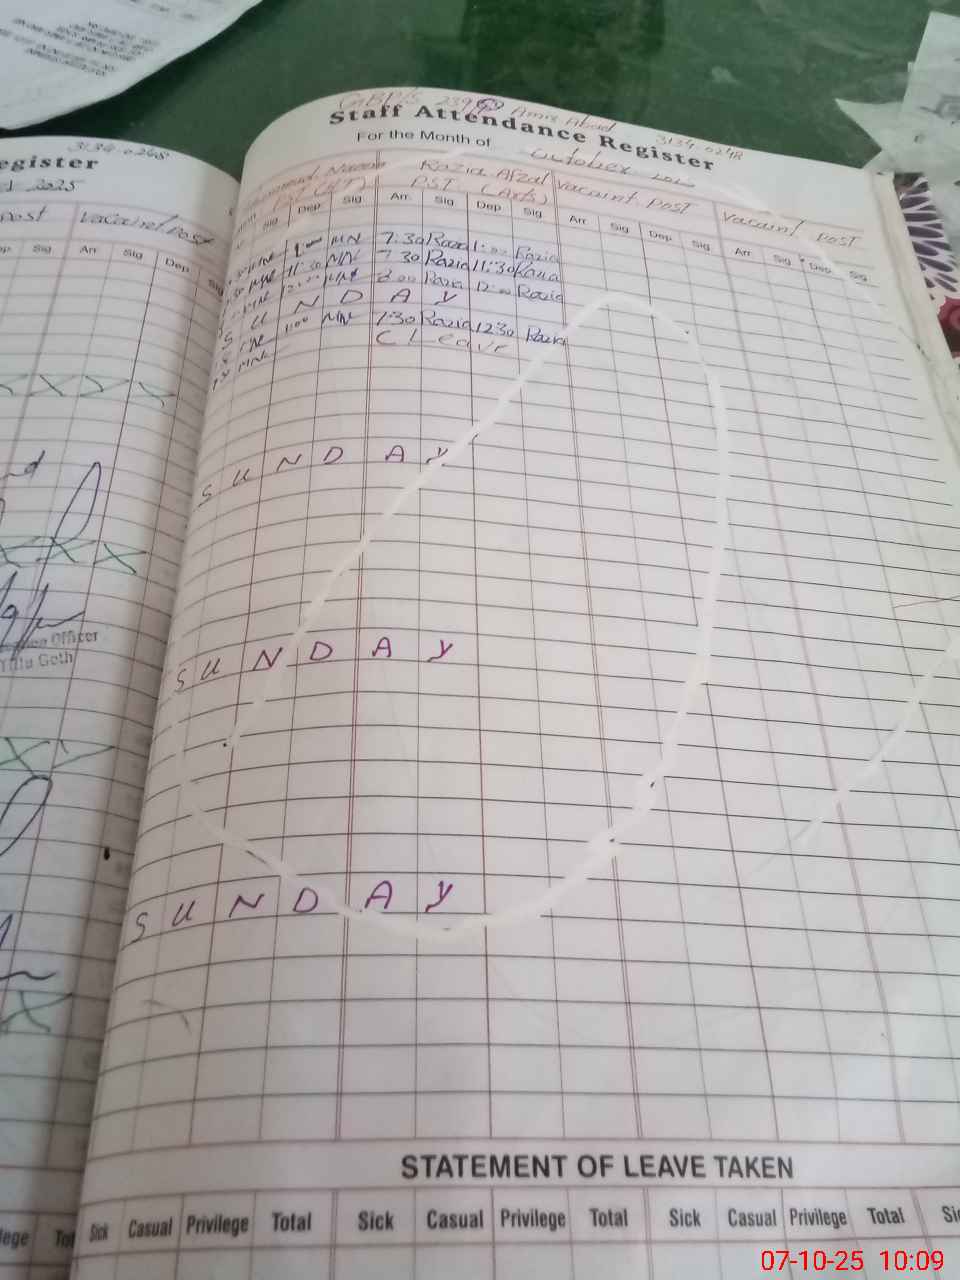 3134-0248
egister
2025
post Vacaint Post
Sig Arr Sig Dep Sig
Officer
Goth
GBP/S 239 Amre Abad
Staff Attendance Register
3134-0248
For the Month of October
Razia Afzal Vacaint post Vacaint post
PST (Arts)
Sig Dep Sig Arr Sig Dep Sig Arr Sig Dep Sig Arr Sig Dep Sig
MN 7:30 Razia 1:00 Razia
11:30 MN 7:30 Razia 11:30 Razia
12:00 MN 8:00 Razia 12:00 Razia
S U N D A Y
1:00 MN 7:30 Razia 12:30 Razia
MN C Leave
S U N D A Y
S U N D A Y
S U N D A Y
STATEMENT OF LEAVE TAKEN
Sick Casual Privilege Total Sick Casual Privilege Total Sick Casual Privilege Total
07-10-25 10:09